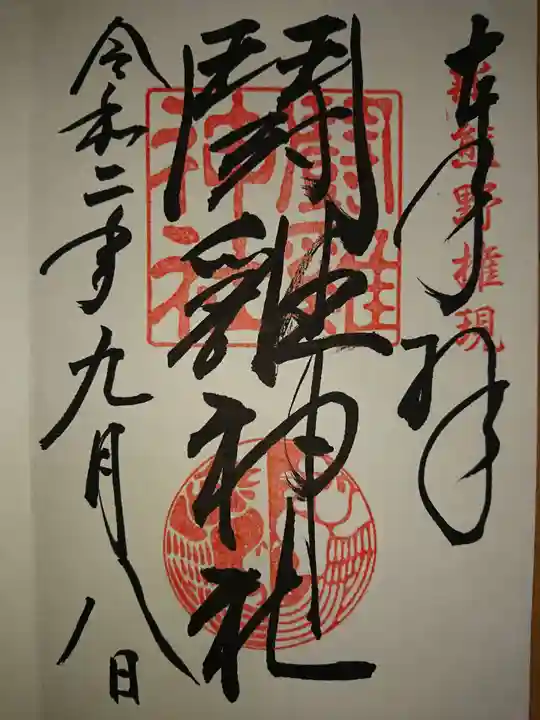 奉拝
新熊野権現
鬪雞神社
鬪雞神社
令和二年九月八日